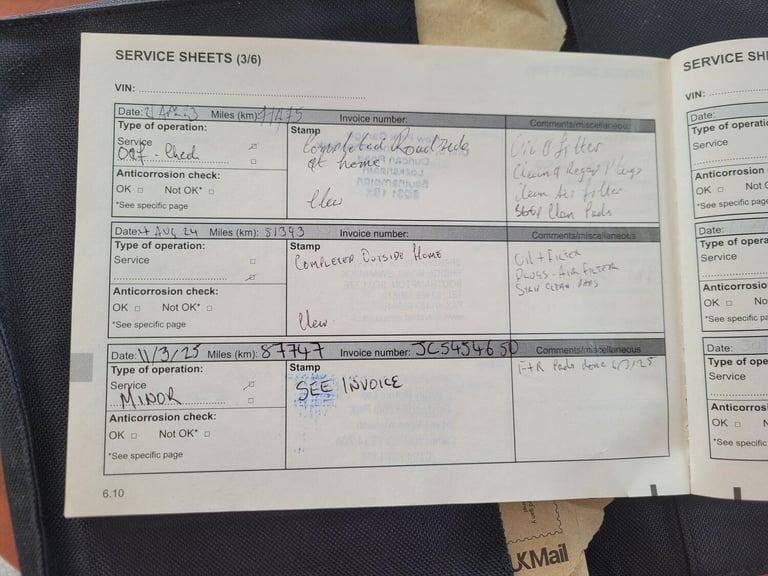 SERVICE SHEETS (3/6)
VIN:
Date: 21 APR 23 Miles (km): Invoice number: Comments/miscellaneous
Type of operation:
Service
Check
Anticorrosion check:
OK Not OK*
*See specific page
Stamp
Completed Roadside
at home
Oil & filter
Clean & Regap Plugs
Clean Air filter
Clean Pads
Date: 4 AUG 24 Miles (km): 81393 Invoice number: Comments/miscellaneous
Type of operation:
Service
Anticorrosion check:
OK Not OK*
*See specific page
Stamp
COMPLETED OUTSIDE HOME
OIL + FILTER
PLUGS - AIR FILTER
CLEAN PADS
Date: 11/3/25 Miles (km): 87747 Invoice number: JC5454650 Comments/miscellaneous
Type of operation:
Service
MINOR
Anticorrosion check:
OK Not OK*
*See specific page
Stamp
SEE INVOICE
F+R Pads done 6/3/25
6.10
SERVICE SH
VIN:
Date:
Type of operatio
Service
Anticorrosion
OK Not O
*See specific pag
Date:
Type of opera
Service
Anticorrosi
OK No
*See specific
Date:
Type of ope
Service
Anticorros
OK N
*See specific
UKMail